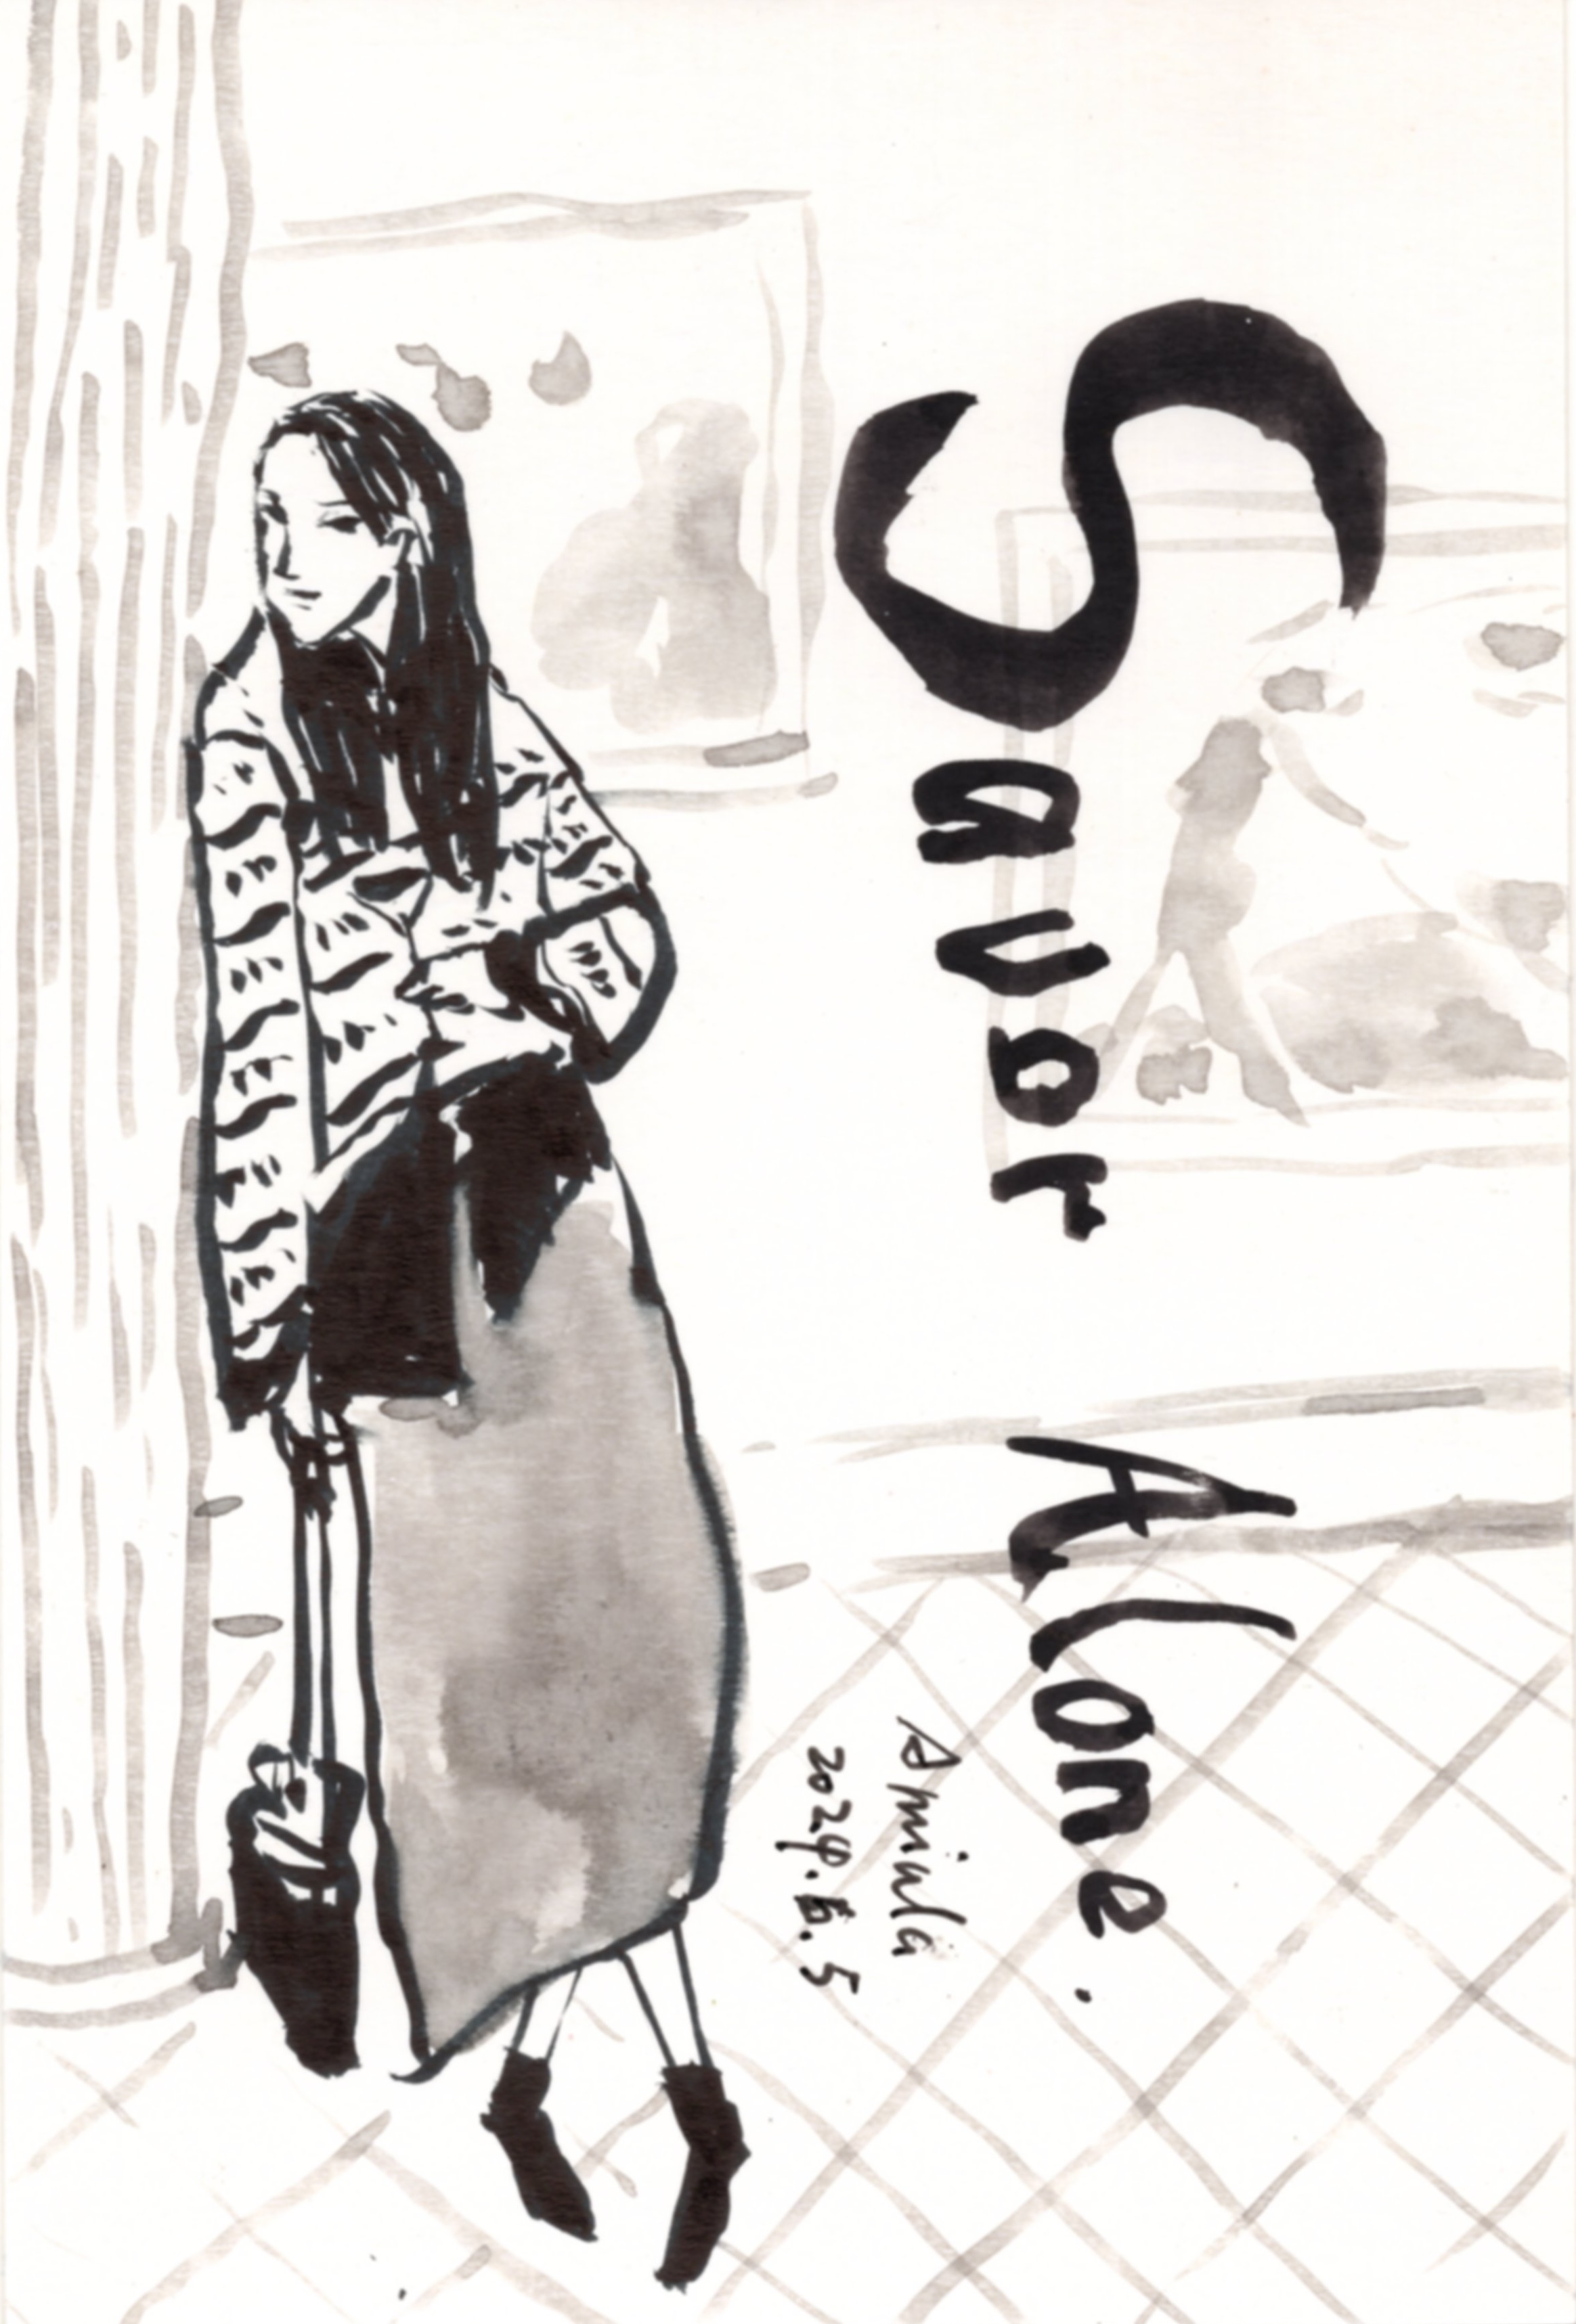 Savor Alone.
Amiula
2024.6.5